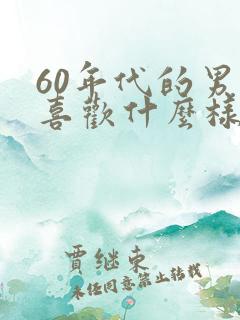 60年代的男
喜歡什麼樣
賈继東
未任同意禁止转载